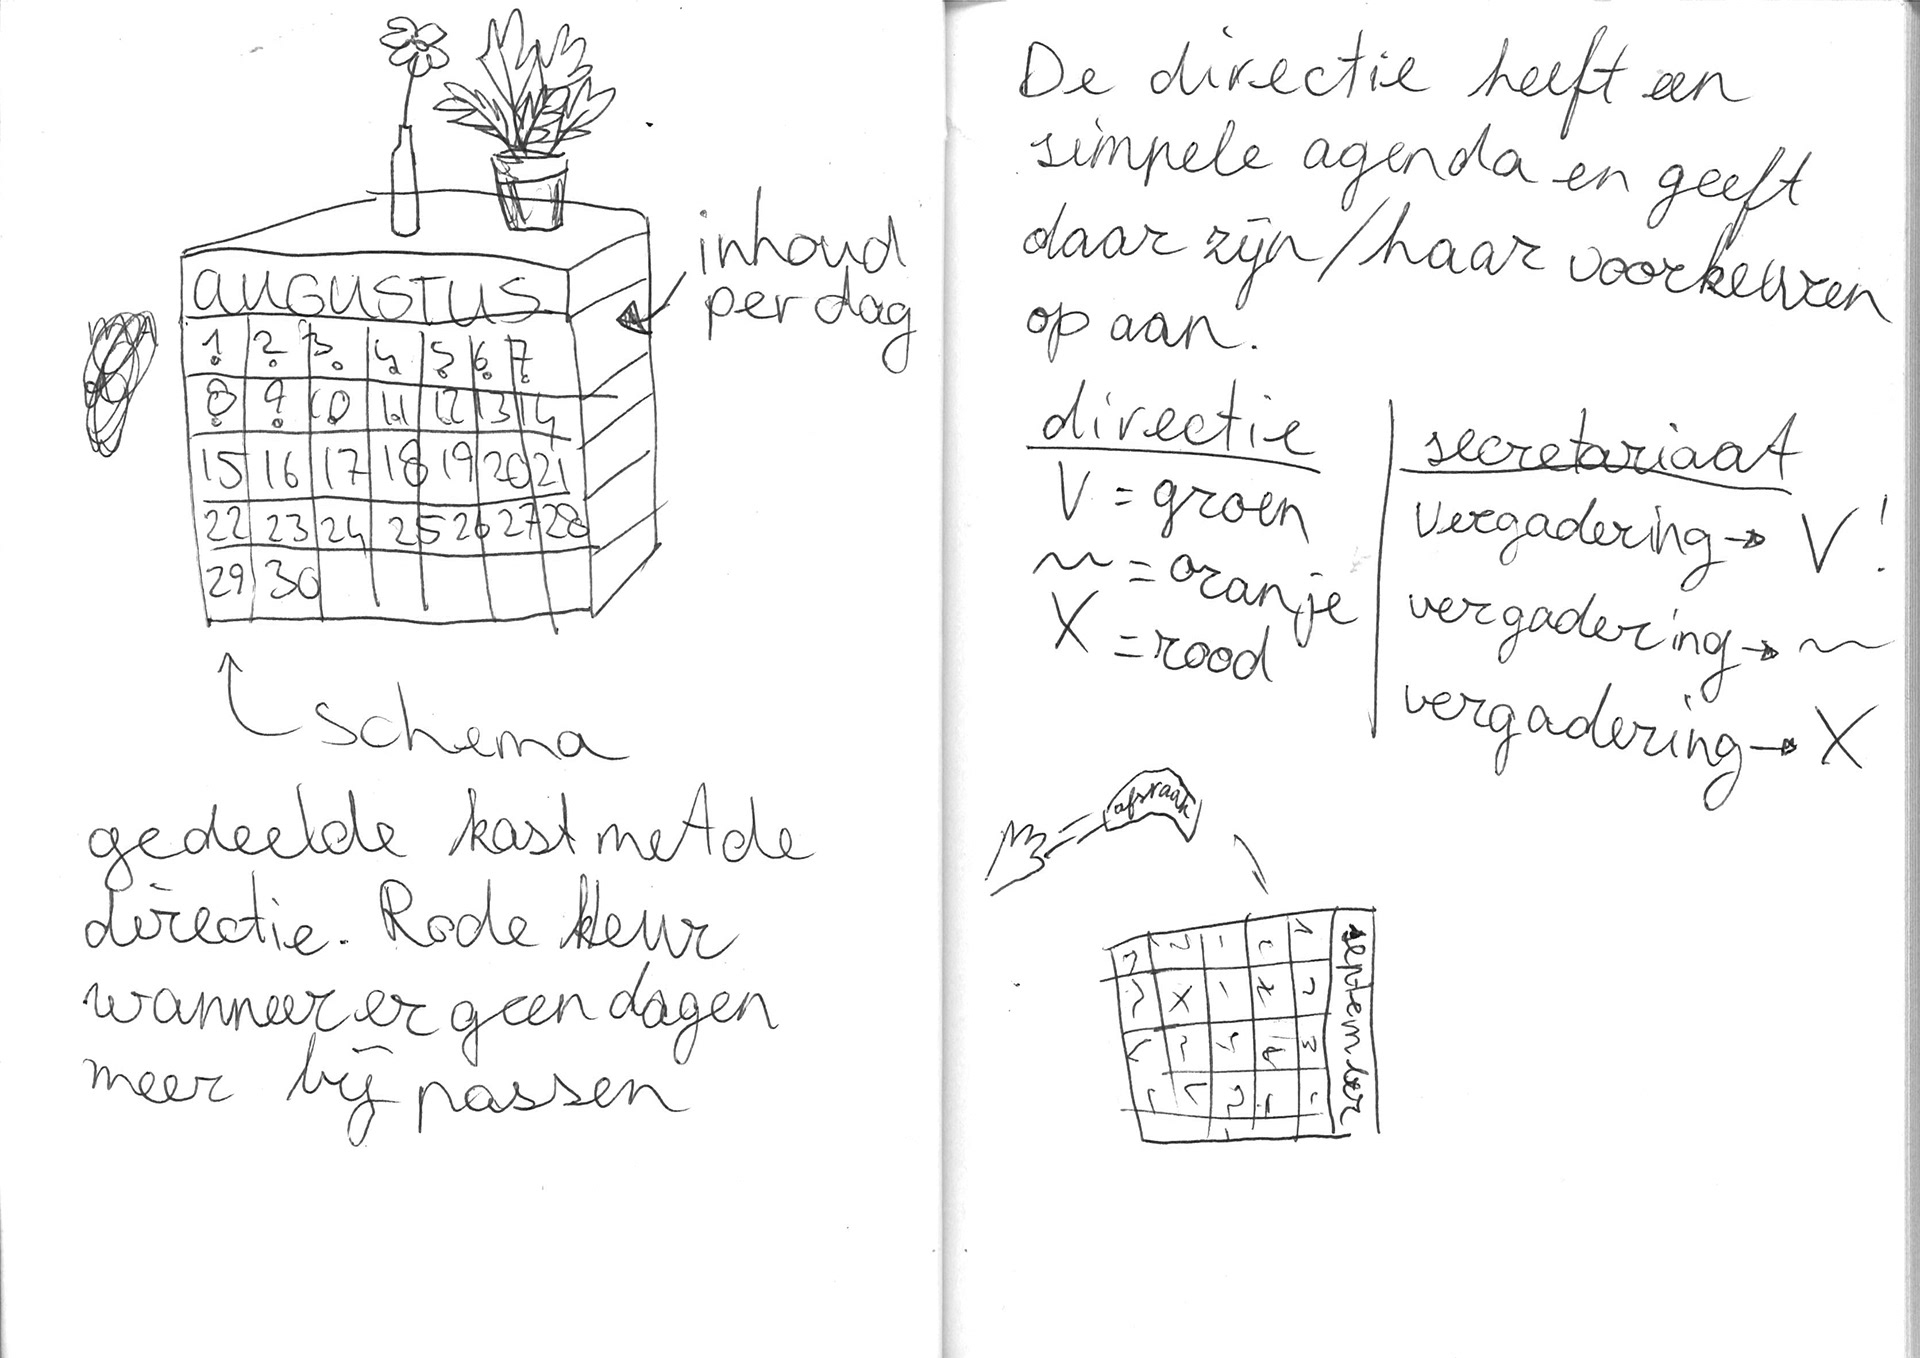 AUGUSTUS
1 2 3 4 5 6 7
8 9 10 11 12 13 14
15 16 17 18 19 20 21
22 23 24 25 26 27 28
29 30
inhoud
per dag
schema
gedeelde kast met de
directie. Rode kleur
wanneer er geen dagen
meer bij passen
De directie heeft een
simpele agenda en geeft
daar zijn/haar voorkeuren
op aan.
directie
V = groen
~ = oranje
X = rood
secretariaat
vergadering → V!
vergadering → ~
vergadering → X
afspraak
september
1 2 3